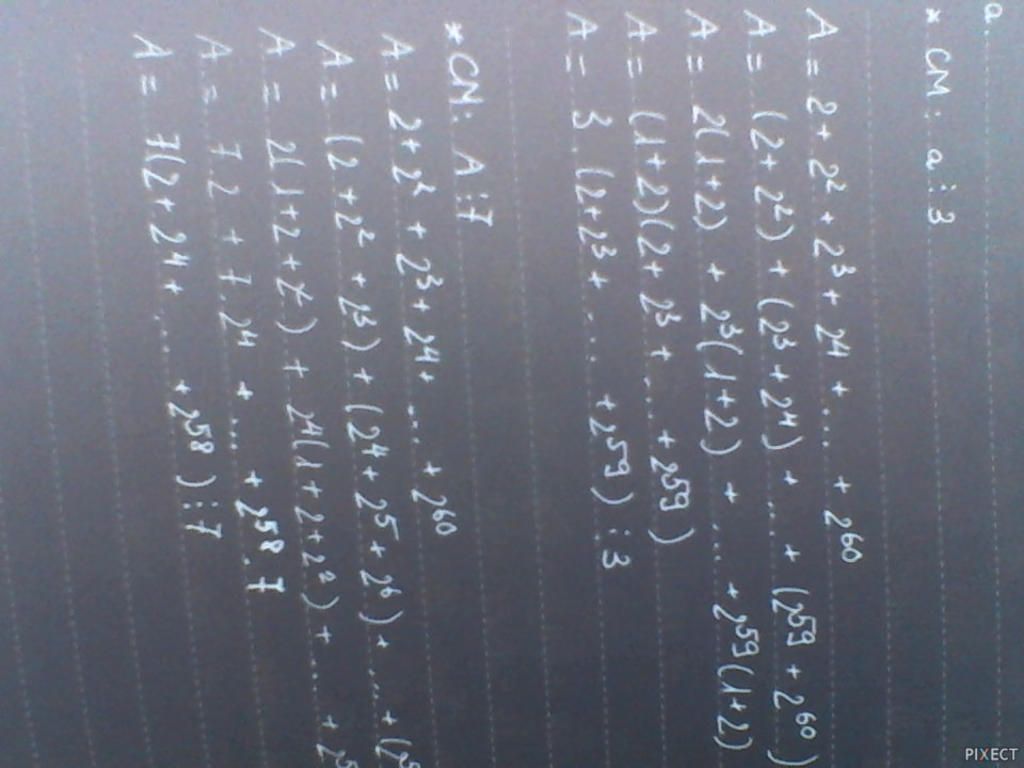 a.
* CM: a ⋮ 3
A = 2 + 2² + 2³ + 2⁴ + .... + 2⁶⁰
A = (2 + 2²) + (2³ + 2⁴) + ... + (2⁵⁹ + 2⁶⁰)
A = 2(1+2) + 2³(1+2) + .... + 2⁵⁹(1+2)
A = (1+2)(2 + 2³ + .... + 2⁵⁹)
A = 3. (2+2³ + .... + 2⁵⁹) ⋮ 3
*CM: A ⋮ 7
A = 2 + 2² + 2³ + 2⁴ + .... + 2⁶⁰
A = (2 + 2² + 2³) + (2⁴ + 2⁵ + 2⁶) + .... + (2⁵
A = 2(1+2+2²) + 2⁴(1+2+2²) + .... + 2⁵
A = 7.2 + 7.2⁴ + .... + 2⁵⁸.7
A = 7(2 + 2⁴ + .... + 2⁵⁸) ⋮ 7
PIXECT